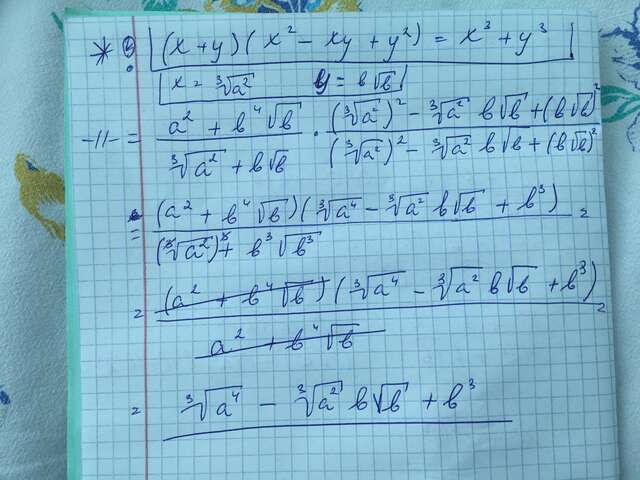 * 6. (x+y)(x² - xy + y²) = x³ + y³
x = ∛a² y = b√b
-//- = (a² + b⁴√b)/(∛a² + b√b) · ((∛a²)² - ∛a² b√b + (b√b)²)/((∛a²)² - ∛a² b√b + (b√b)²)
= ((a² + b⁴√b)(∛a⁴ - ∛a² b√b + b³))/((∛a²)³ + b³√b³) =
= ((a² + b⁴√b)(∛a⁴ - ∛a² b√b + b³))/(a² + b⁴√b) =
= ∛a⁴ - ∛a² b√b + b³